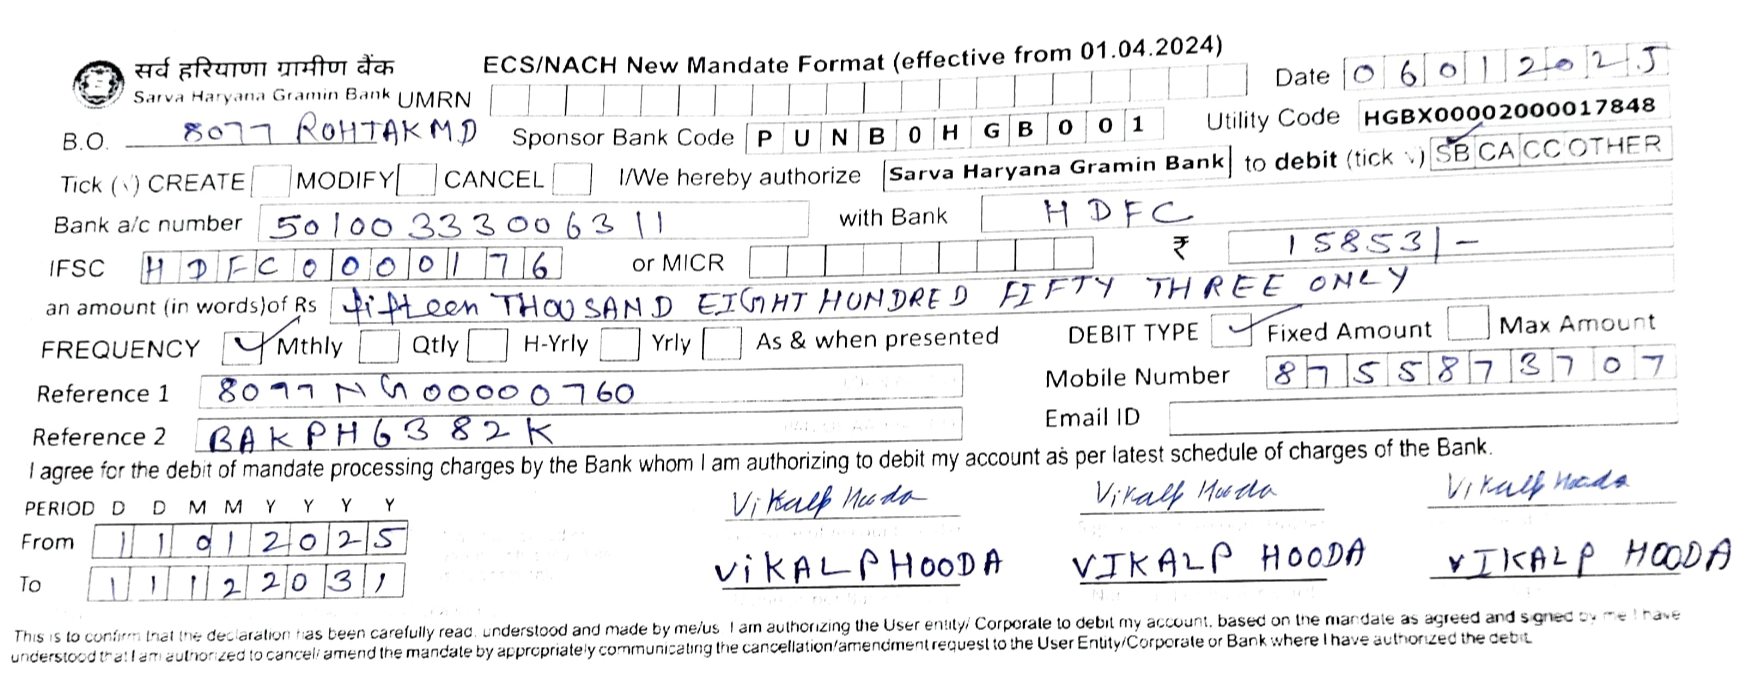 सर्व हरियाणा ग्रामीण बैंक
Sarva Haryana Gramin Bank
ECS/NACH New Mandate Format (effective from 01.04.2024)
UMRN
Date 06012025
B.O. 8077 ROHTAK MD Sponsor Bank Code PUNB0HGB001 Utility Code HGBX00002000017848
Tick (√) CREATE MODIFY CANCEL I/We hereby authorize Sarva Haryana Gramin Bank to debit (tick √) SB CA CC OTHER
Bank a/c number 50100333006311 with Bank HDFC
IFSC HDFC0000176 or MICR ₹ 15853/-
an amount (in words)of Rs fifteen THOUSAND EIGHT HUNDRED FIFTY THREE ONLY
FREQUENCY Mthly Qtly H-Yrly Yrly As & when presented DEBIT TYPE Fixed Amount Max Amount
Reference 1 8077NG00000760 Mobile Number 8755873707
Reference 2 BAKPH6382K Email ID
I agree for the debit of mandate processing charges by the Bank whom I am authorizing to debit my account as per latest schedule of charges of the Bank.
PERIOD D D M M Y Y Y Y
Vikalp Hooda Vikalp Hooda Vikalp Hooda
From 11012025
ViKALP HOODA VIKALP HOODA VIKALP HOODA
To 11122031
This is to confirm that the declaration has been carefully read, understood and made by me/us I am authorizing the User entity/ Corporate to debit my account, based on the mandate as agreed and signed by me I have
understood that I am authorized to cancel/ amend the mandate by appropriately communicating the cancellation/amendment request to the User Entity/Corporate or Bank where I have authorized the debit.